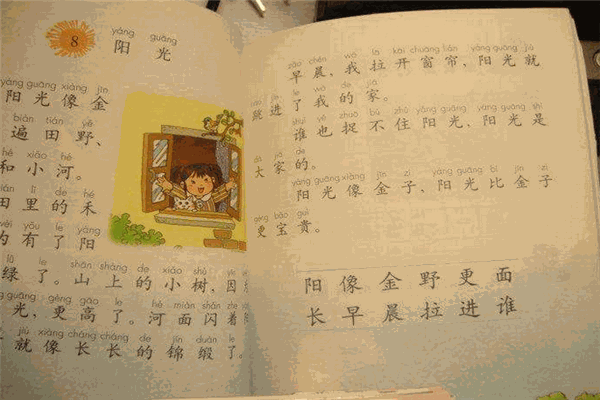 8
yáng guāng
阳 光
yáng guāng xiàng jīn
阳光像金
biàn tián yě
遍田野、
hé xiǎo hé
和小河。
li de hé
田里的禾
yǒu le yáng
有了阳
shān shàng de xiǎo shù
绿了。山上的小树,因
guāng gèng gāo le hé miàn shǎn zhe
光,更高了。河面闪着
jiù xiàng cháng cháng de jǐn duàn le
就像长长的锦缎了。
zǎo chén wǒ lā kāi chuāng lián yáng guāng jiù
早晨,我拉开窗帘,阳光就
tiào jìn le wǒ de jiā
跳进了我的家。
shuí yě zhuō bú zhù yáng guāng yáng guāng shì
谁也捉不住阳光,阳光是
dà jiā de
大家的。
yáng guāng xiàng jīn zi yáng guāng bǐ jīn zi
阳光像金子,阳光比金子
gèng bǎo guì
更宝贵。
阳像金野更面
长早晨拉进谁